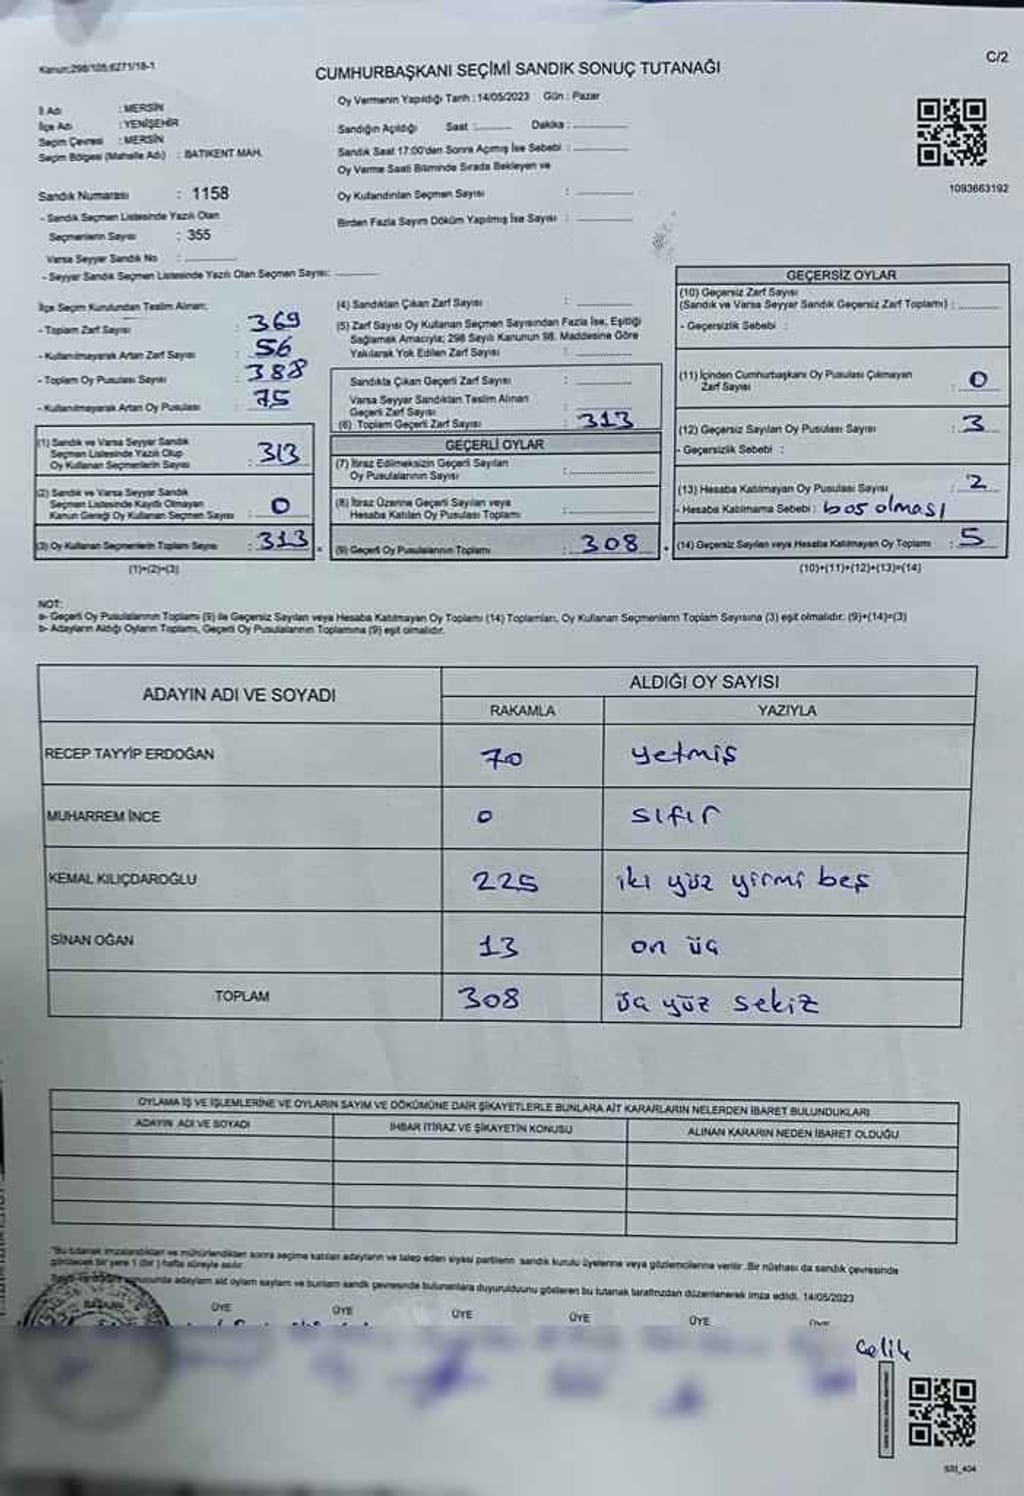 Kanun:298/105,6271/18-1
C/2
CUMHURBAŞKANI SEÇİMİ SANDIK SONUÇ TUTANAĞI
İl Adı : MERSİN
İlçe Adı : YENİŞEHİR
Seçim Çevresi : MERSİN
Seçim Bölgesi (Mahalle Adı) : BATIKENT MAH.
Oy Vermenin Yapıldığı Tarih : 14/05/2023 Gün : Pazar
Sandığın Açıldığı Saat : Dakika :
Sandık Saat 17:00'den Sonra Açmış İse Sebebi :
Oy Verme Saati Bitiminde Sırada Bekleyen ve
Oy Kullandırılan Seçmen Sayısı :
Birden Fazla Sayım Döküm Yapılmış İse Sayısı :
1093663192
Sandık Numarası : 1158
- Sandık Seçmen Listesinde Yazılı Olan
Seçmenlerin Sayısı : 355
Varsa Seyyar Sandık No :
- Seyyar Sandık Seçmen Listesinde Yazılı Olan Seçmen Sayısı:
İlçe Seçim Kurulundan Teslim Alınan;
- Toplam Zarf Sayısı : 369
- Kullanılmayarak Artan Zarf Sayısı : 56
- Toplam Oy Pusulası Sayısı : 388
- Kullanılmayarak Artan Oy Pusulası : 75
(1) Sandık ve Varsa Seyyar Sandık
Seçmen Listesinde Yazılı Olup
Oy Kullanan Seçmenlerin Sayısı : 313
(2) Sandık ve Varsa Seyyar Sandık
Seçmen Listesinde Kayıtlı Olmayan
Kanun Gereği Oy Kullanan Seçmen Sayısı : 0
(3) Oy Kullanan Seçmenlerin Toplam Sayısı : 313
(1)+(2)=(3)
(4) Sandıktan Çıkan Zarf Sayısı :
(5) Zarf Sayısı Oy Kullanan Seçmen Sayısından Fazla İse, Eşitliği
Sağlamak Amacıyla; 298 Sayılı Kanunun 98. Maddesine Göre
Yakılarak Yok Edilen Zarf Sayısı :
Sandıkta Çıkan Geçerli Zarf Sayısı :
Varsa Seyyar Sandıktan Teslim Alınan
Geçerli Zarf Sayısı :
(6) Toplam Geçerli Zarf Sayısı : 313
GEÇERLİ OYLAR
(7) İtiraz Edilmeksizin Geçerli Sayılan
Oy Pusulalarının Sayısı :
(8) İtiraz Üzerine Geçerli Sayılan veya
Hesaba Katılan Oy Pusulası Toplamı :
(9) Geçerli Oy Pusulalarının Toplamı : 308
GEÇERSİZ OYLAR
(10) Geçersiz Zarf Sayısı
(Sandık ve Varsa Seyyar Sandık Geçersiz Zarf Toplamı) :
- Geçersizlik Sebebi :
(11) İçinden Cumhurbaşkanı Oy Pusulası Çıkmayan
Zarf Sayısı : 0
(12) Geçersiz Sayılan Oy Pusulası Sayısı : 3
- Geçersizlik Sebebi :
(13) Hesaba Katılmayan Oy Pusulası Sayısı : 2
- Hesaba Katılmama Sebebi : boş olması
(14) Geçersiz Sayılan veya Hesaba Katılmayan Oy Toplamı : 5
(10)+(11)+(12)+(13)=(14)
NOT:
a- Geçerli Oy Pusulalarının Toplamı (9) ile Geçersiz Sayılan veya Hesaba Katılmayan Oy Toplamı (14) Toplamları, Oy Kullanan Seçmenlerin Toplam Sayısına (3) eşit olmalıdır. (9)+(14)=(3)
b- Adayların Aldığı Oyların Toplamı, Geçerli Oy Pusulalarının Toplamına (9) eşit olmalıdır.
ADAYIN ADI VE SOYADI
ALDIĞI OY SAYISI
RAKAMLA YAZIYLA
RECEP TAYYİP ERDOĞAN 70 yetmiş
MUHARREM İNCE 0 sıfır
KEMAL KILIÇDAROĞLU 225 iki yüz yirmi beş
SİNAN OĞAN 13 on üç
TOPLAM 308 üç yüz sekiz
OYLAMA İŞ VE İŞLEMLERİNE VE OYLARIN SAYIM VE DÖKÜMÜNE DAİR ŞİKAYETLERLE BUNLARA AİT KARARLARIN NELERDEN İBARET BULUNDUKLARI
ADAYIN ADI VE SOYADI İHBAR İTİRAZ VE ŞİKAYETİN KONUSU ALINAN KARARIN NEDEN İBARET OLDUĞU
"Bu tutanak imzalandıktan ve mühürlendikten sonra seçime katılan adayların ve talep eden siyasi partilerin sandık kurulu üyelerine veya gözlemcilerine verilir. Bir nüshası da sandık çevresinde
görülecek bir yere 1 (bir) hafta süreyle asılır.
sonucunda adayların ait oyların sayıları ve bunların sandık çevresinde bulunanlara duyurulduğunu gösteren bu tutanak tarafımızdan düzenlenerek imza edildi. 14/05/2023
BAŞKAN ÜYE ÜYE ÜYE ÜYE ÜYE ÜYE
Çelik